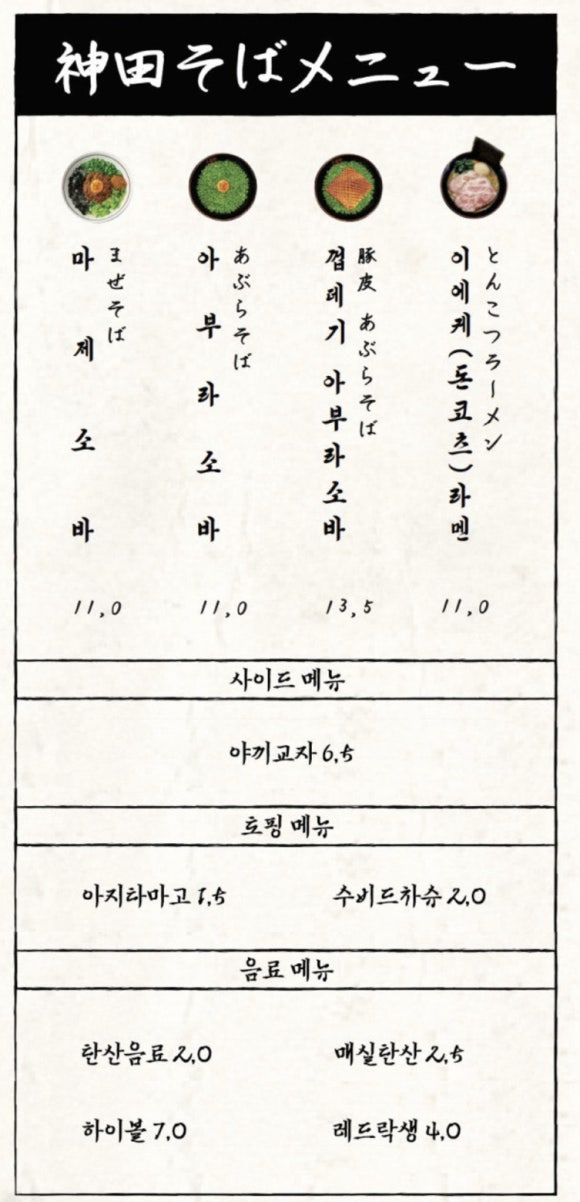 神田そばメニュー
마제소바
まぜそば
11,0
아부라소바
あぶらそば
11,0
껍데기 아부라소바
豚皮 あぶらそば
13,5
이에케(돈코츠)라멘
とんこつラーメン
11,0
사이드 메뉴
야끼교자 6,5
토핑 메뉴
아지타마고 1,5
수비드차슈 2,0
음료 메뉴
탄산음료 2,0
매실탄산 2,5
하이볼 7,0
레드락생 4,0